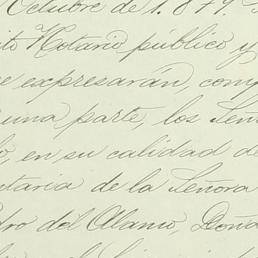 Octubre de 1.879.
Notario público y
e expresarán, comp
una parte, los Señ
o, en su calidad de
ntaria de la Señora
dro del Alamo, Doña